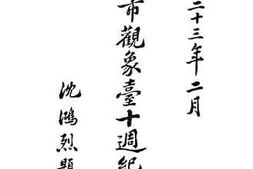 二十三年二月
市觀象臺十週紀
沈鴻烈題